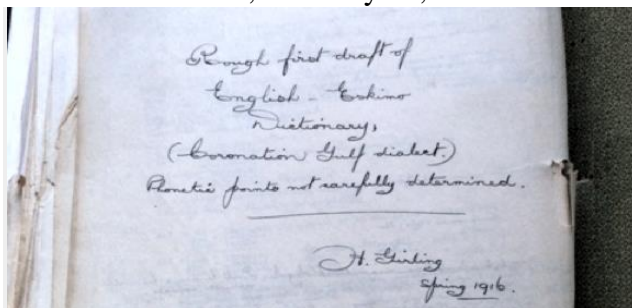 Rough first draft of
English - Eskimo
Dictionary,
(Coronation Gulf dialect.)
Phonetic points not carefully determined.
H. Girling
Spring 1916.